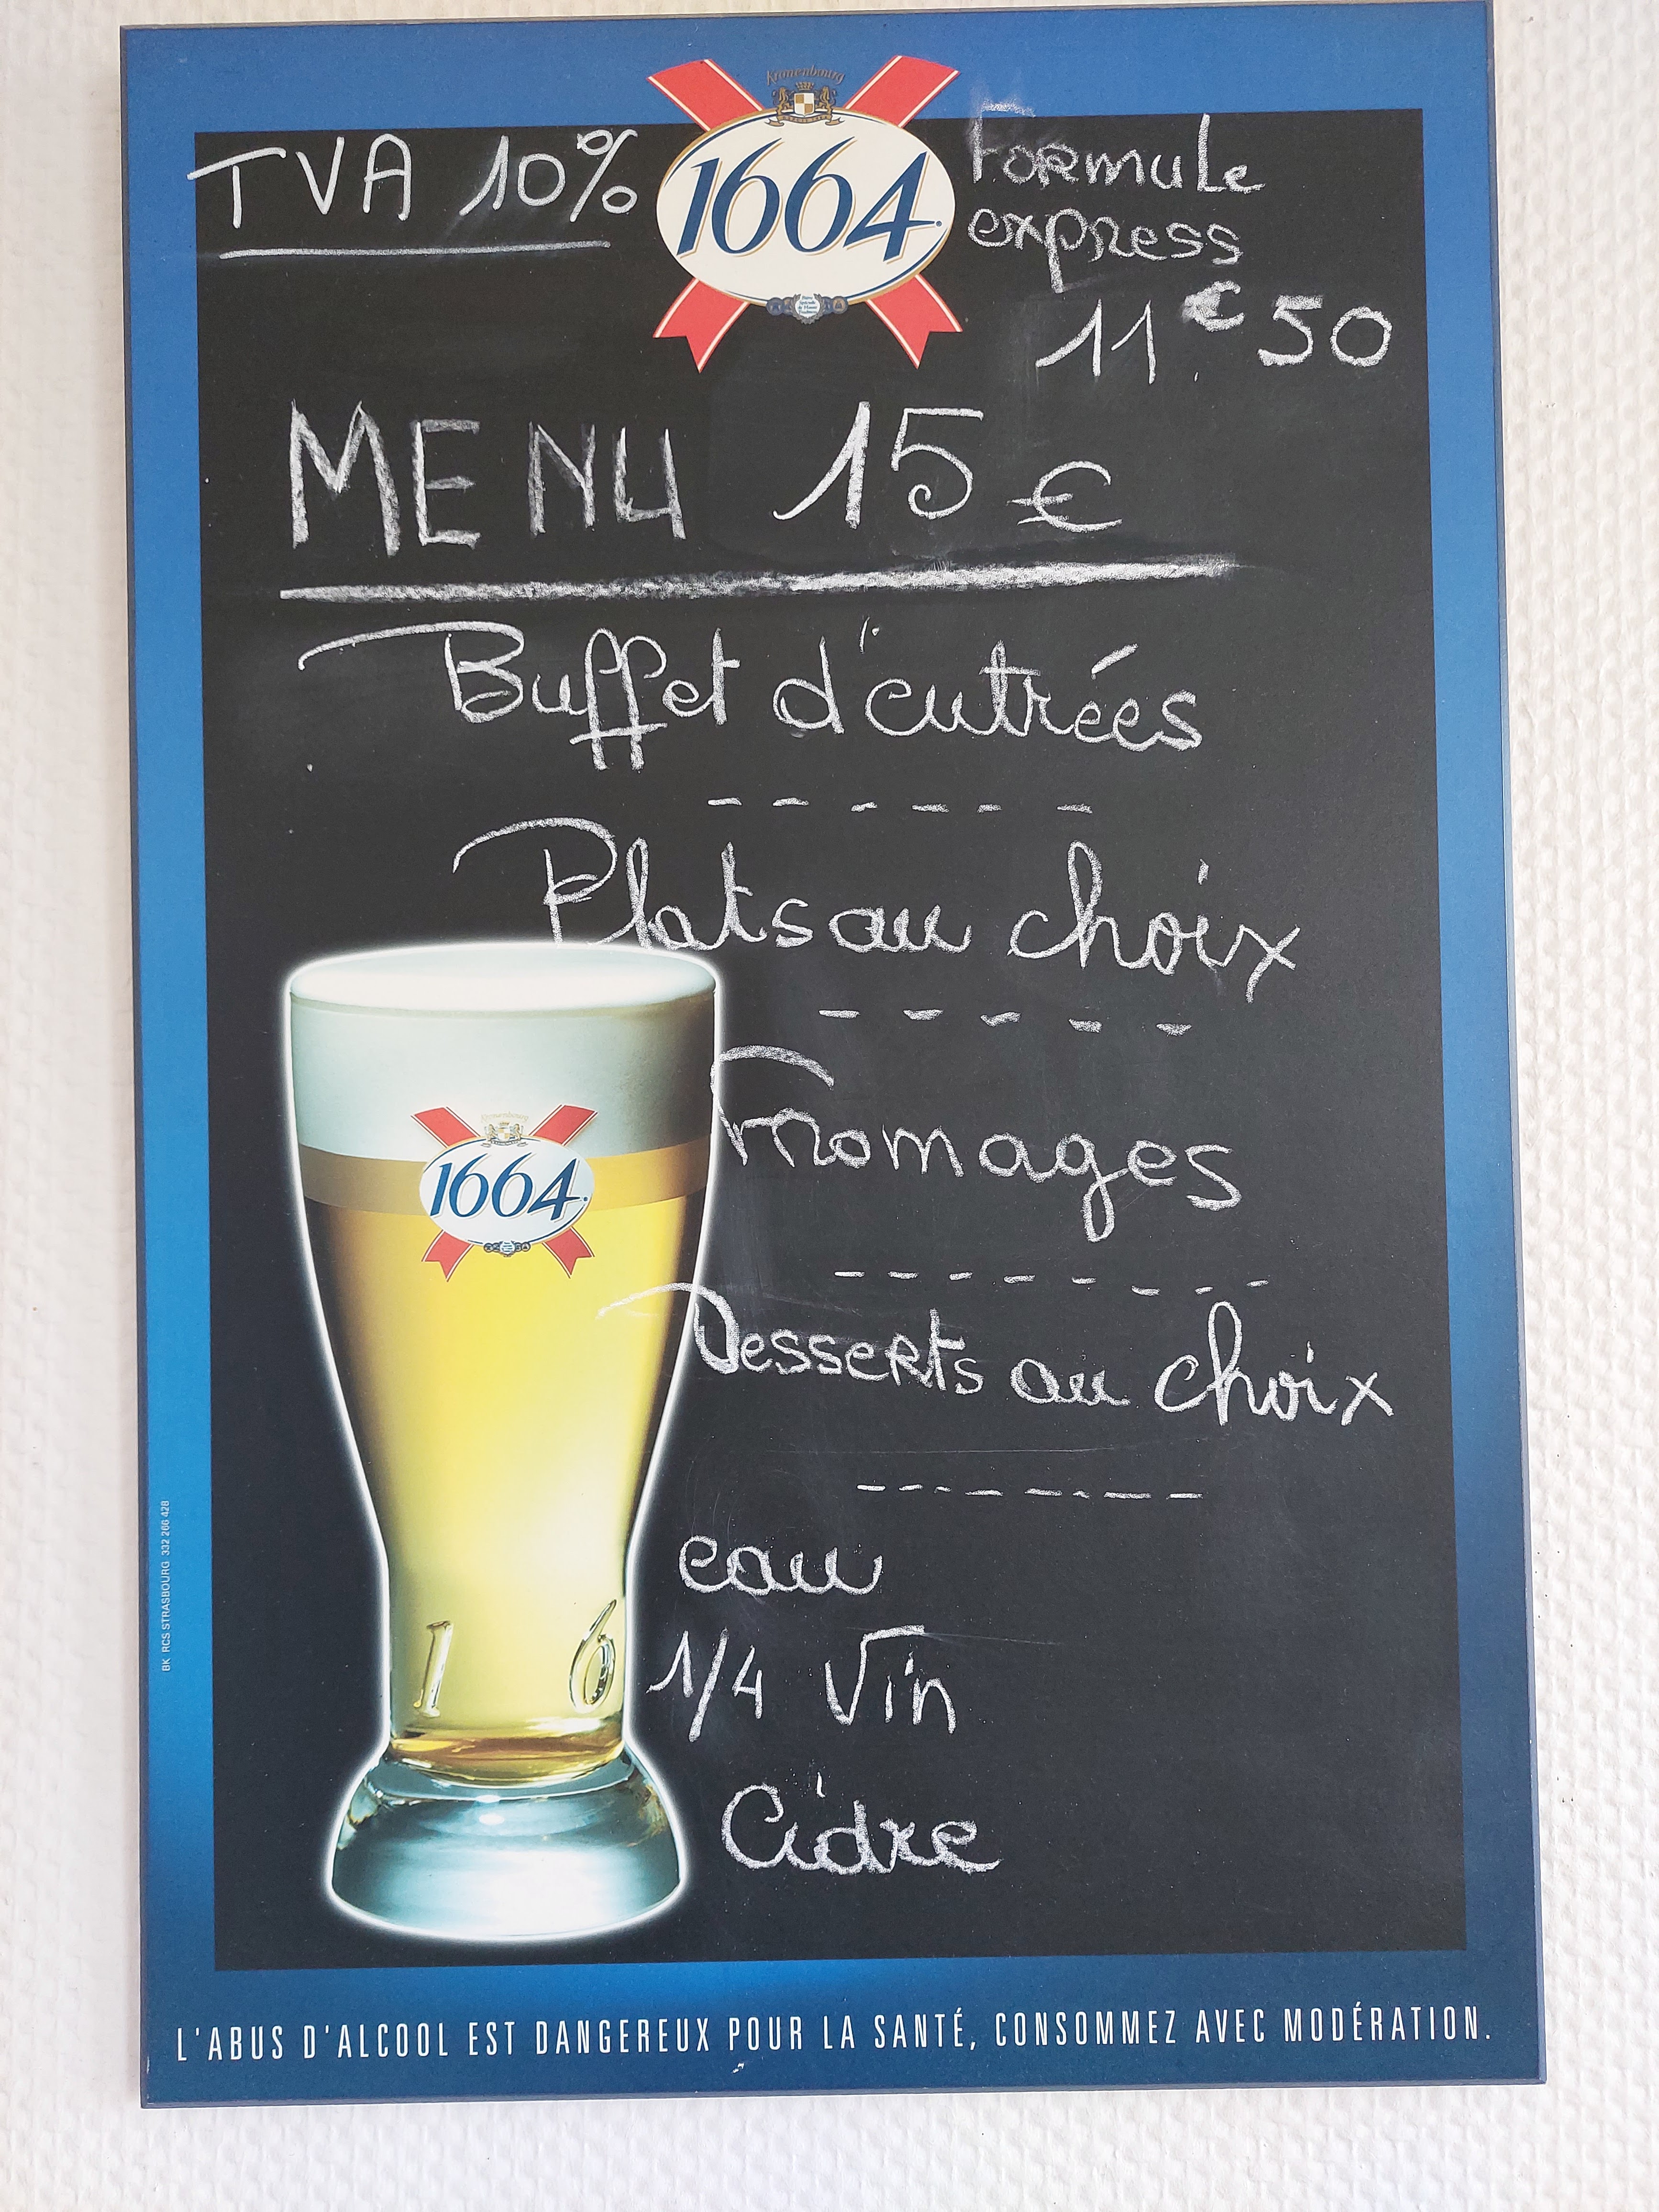 Kronenbourg
1664
TVA 10%
Formule
express
11€50
MENU 15€
Buffet d'entrées
------
Plats au choix
-----
Fromages
--------
Desserts au choix
-------
eau
1/4 Vin
Cidre
Kronenbourg
1664
1 6
BK RCS STRASBOURG 332 266 428
L'ABUS D'ALCOOL EST DANGEREUX POUR LA SANTÉ, CONSOMMEZ AVEC MODÉRATION.